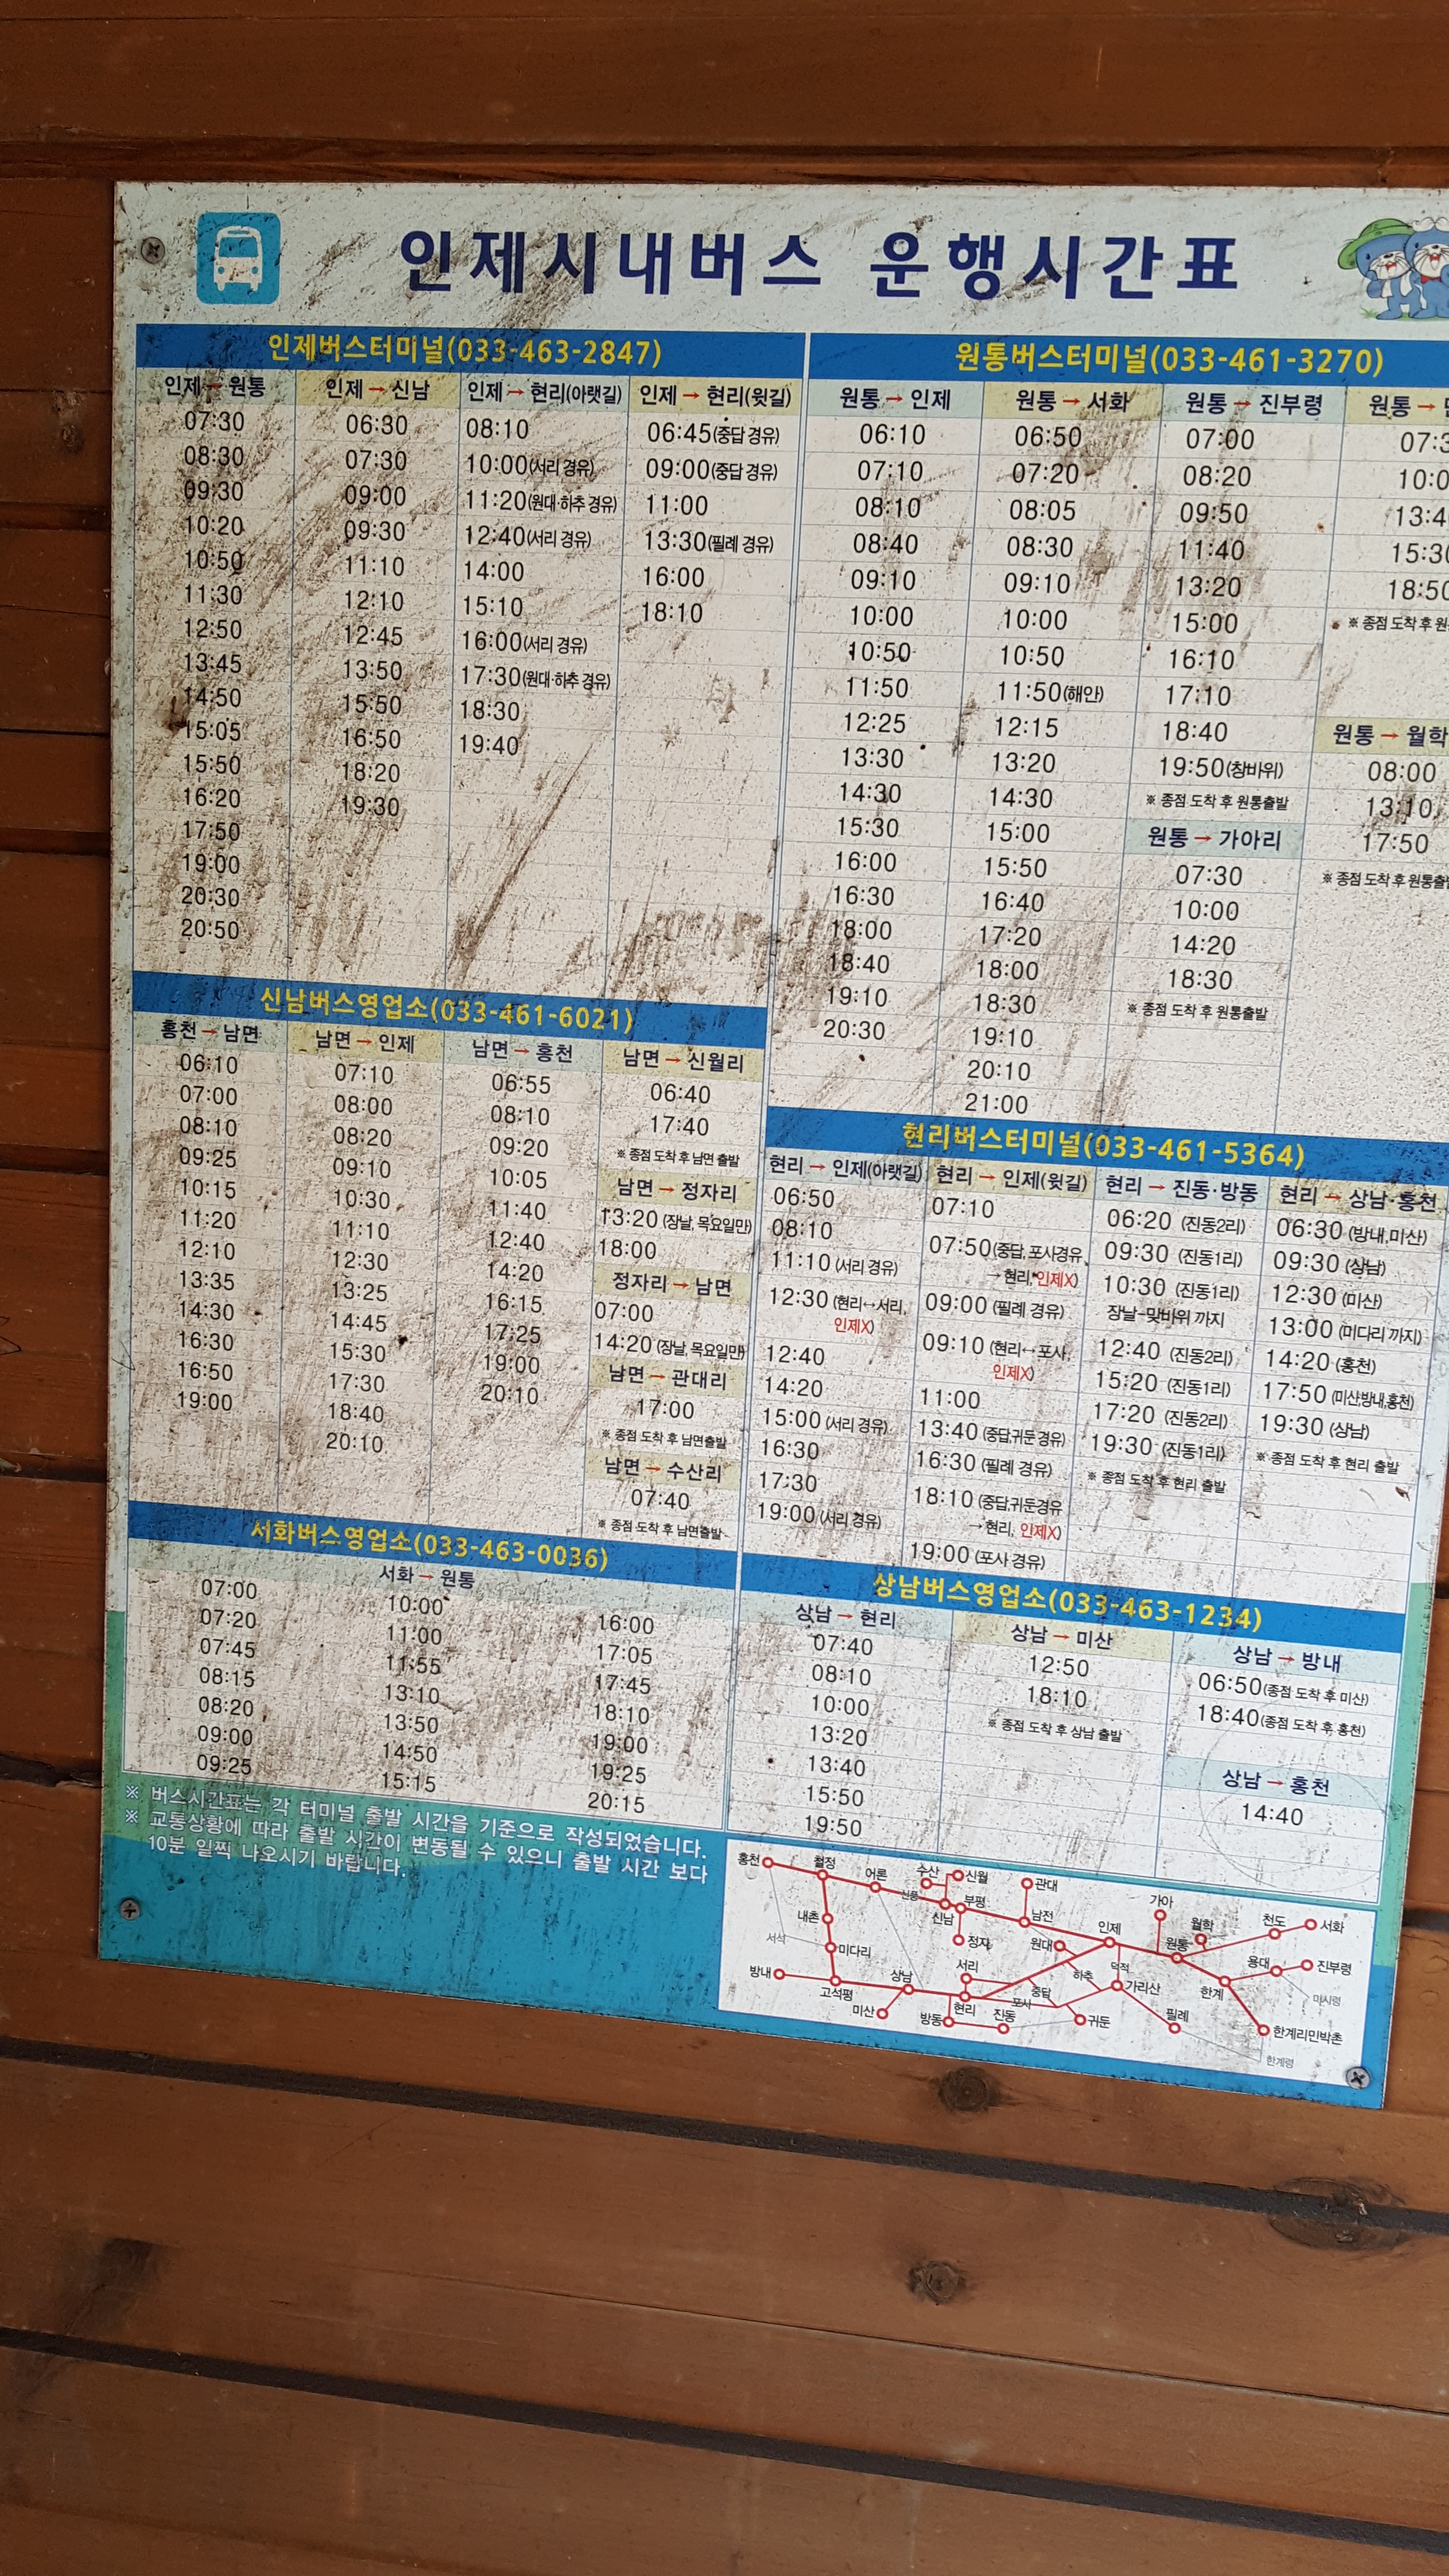 인제시내버스 운행시간표
인제버스터미널(033-463-2847)
인제→원통
07:30
08:30
09:30
10:20
10:50
11:30
12:50
13:45
14:50
15:05
15:50
16:20
17:50
19:00
20:30
20:50
인제→신남
06:30
07:30
09:00
09:30
11:10
12:10
12:45
13:50
15:50
16:50
18:20
19:30
인제→현리(아랫길)
08:10
10:00(서리 경유)
11:20(원대·하추 경유)
12:40(서리 경유)
14:00
15:10
16:00(서리 경유)
17:30(원대·하추 경유)
18:30
19:40
인제→현리(윗길)
06:45(중답 경유)
09:00(중답 경유)
11:00
13:30(필례 경유)
16:00
18:10
원통버스터미널(033-461-3270)
원통→인제
06:10
07:10
08:10
08:40
09:10
10:00
10:50
11:50
12:25
13:30
14:30
15:30
16:00
16:30
18:00
18:40
19:10
20:30
원통→서화
06:50
07:20
08:05
08:30
09:10
10:00
10:50
11:50(해안)
12:15
13:20
14:30
15:00
15:50
16:40
17:20
18:00
18:30
19:10
20:10
21:00
원통→진부령
07:00
08:20
09:50
11:40
13:20
15:00
16:10
17:10
18:40
19:50(창바위)
※ 종점 도착 후 원통출발
원통→가아리
07:30
10:00
14:20
18:30
※ 종점 도착 후 원통출발
원통→
07:3
10:0
13:4
15:30
18:50
※ 종점 도착 후 원
원통→월학
08:00
13:10
17:50
※ 종점 도착 후 원통출발
신남버스영업소(033-461-6021)
홍천→남면
06:10
07:00
08:10
09:25
10:15
11:20
12:10
13:35
14:30
16:30
16:50
19:00
남면→인제
07:10
08:00
08:20
09:10
10:30
11:10
12:30
13:25
14:45
15:30
17:30
18:40
20:10
남면→홍천
06:55
08:10
09:20
10:05
11:40
12:40
14:20
16:15
17:25
19:00
20:10
남면→신월리
06:40
17:40
※ 종점 도착 후 남면 출발
남면→정자리
13:20 (장날, 목요일만)
18:00
정자리→남면
07:00
14:20 (장날, 목요일만)
남면→관대리
17:00
※ 종점 도착 후 남면출발
남면→수산리
07:40
※ 종점 도착 후 남면출발
현리버스터미널(033-461-5364)
현리→인제(아랫길)
06:50
08:10
11:10 (서리 경유)
12:30 (현리↔서리,
인제X)
12:40
14:20
15:00 (서리 경유)
16:30
17:30
19:00 (서리 경유)
현리→인제(윗길)
07:10
07:50(중답, 포사경유
→현리, 인제X)
09:00 (필례 경유)
09:10 (현리↔포사,
인제X)
11:00
13:40 (중답귀둔 경유)
16:30 (필례 경유)
18:10 (중답,귀둔경유
→현리, 인제X)
19:00 (포사 경유)
현리→진동·방동
06:20 (진동2리)
09:30 (진동1리)
10:30 (진동1리)
장날-맞바위 까지
12:40 (진동2리)
15:20 (진동1리)
17:20 (진동2리)
19:30 (진동1리)
※ 종점 도착 후 현리 출발
현리→상남·홍천
06:30 (방내,미산)
09:30 (상남)
12:30 (미산)
13:00 (미다리 까지)
14:20 (홍천)
17:50 (미산,방내,홍천)
19:30 (상남)
※ 종점 도착 후 현리 출발
서화버스영업소(033-463-0036)
서화→원통
07:00
07:20
07:45
08:15
08:20
09:00
09:25
10:00
11:00
11:55
13:10
13:50
14:50
15:15
16:00
17:05
17:45
18:10
19:00
19:25
20:15
상남버스영업소(033-463-1234)
상남→현리
07:40
08:10
10:00
13:20
13:40
15:50
19:50
상남→미산
12:50
18:10
※ 종점 도착 후 상남 출발
상남→방내
06:50(종점 도착 후 미산)
18:40(종점 도착 후 홍천)
상남→홍천
14:40
※ 버스시간표는 각 터미널 출발 시간을 기준으로 작성되었습니다.
※ 교통상황에 따라 출발 시간이 변동될 수 있으니 출발 시간 보다
10분 일찍 나오시기 바랍니다.
홍천 철정 어론 수산 신월 관대
신풍 부평 신남 남전 가아
내촌 정자 원대 인제 월학 천도 서화
서석 미다리 원통
방내 상남 서리 하추 덕적 용대 진부령
고석평 중답 가리산 한계 미시령
미산 방동 현리 진동 포사 귀둔 필례 한계리민박촌
한계령